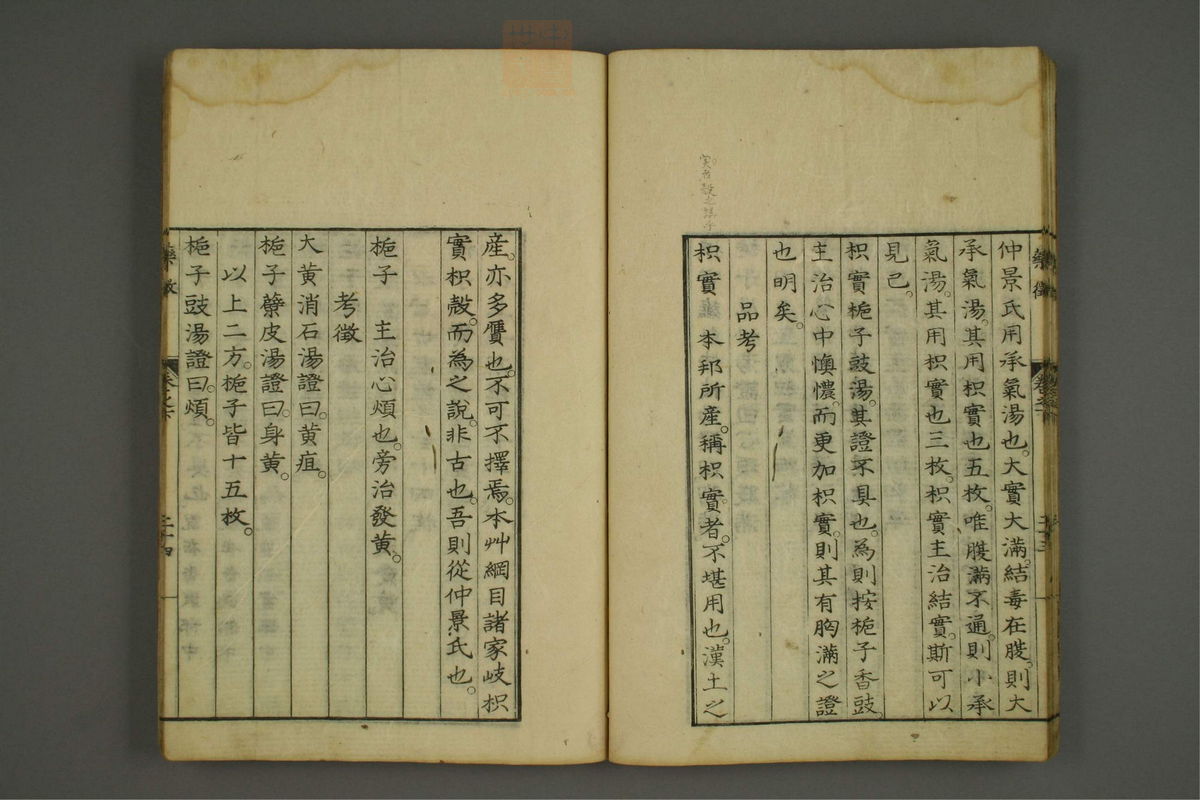 仲景氏用承氣湯也。大實大滿。結毒在腹。則大
承氣湯。其用枳實也五枚。唯腹滿不通。則小承
氣湯。其用枳實也三枚。枳實主治結實。斯可以
見已。
枳實梔子豉湯。其證不具也。為則按梔子香豉。
主治心中懊憹。而更加枳實。則其有胸滿之證
也明矣。
品考
枳實 本邦所産。稱枳實。者。不堪用也。漢土之
産。亦多贋也。不可不擇焉。本艸綱目諸家岐枳
實枳殼。而為之說。非古也。吾則從仲景氏也。
梔子 主治心煩也。旁治發黃。
考徵
大黃消石湯證曰。黃疸。
梔子蘗皮湯證曰。身黃。
以上二方。梔子皆十五枚。
梔子豉湯證曰。煩。
藥徵
藥徵
二十四